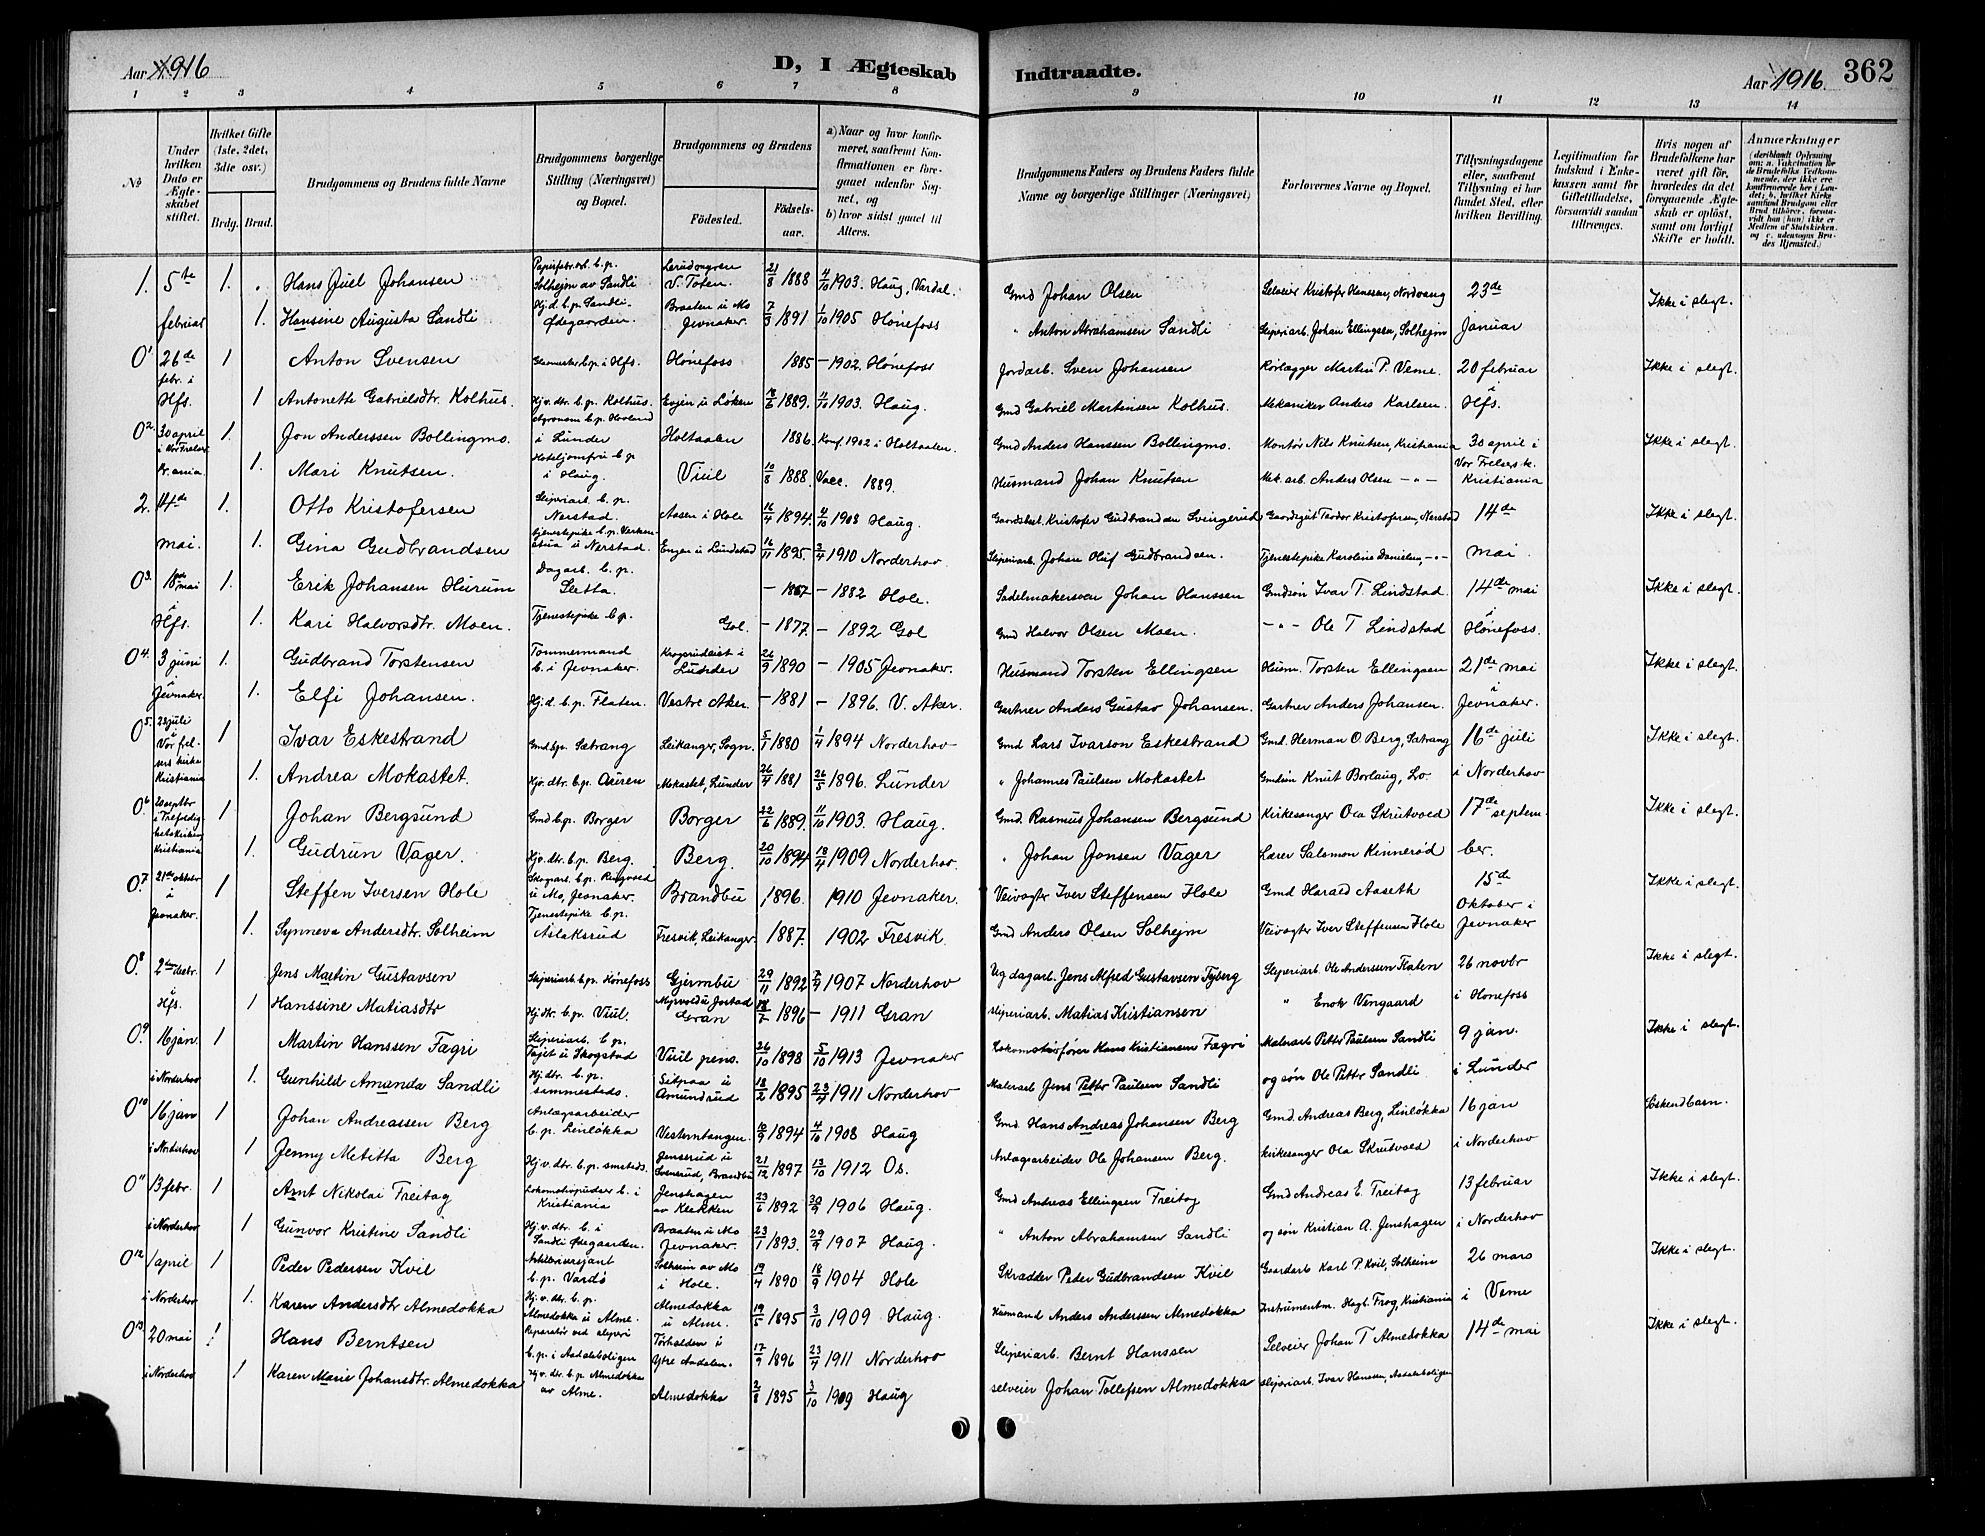 Aar 1916
D, I Ægteskab Indtraadte.
Aar 1916.
362
1 2 3 4 5 6 7 8 9 10 11 12 13 14
№
Under hvilken Dato er Ægteskabet stiftet.
Hvilket Gifte (1ste, 2det, 3die osv.)
Brdg. Brud.
Brudgommens og Brudens fulde Navne
Brudgommens borgerlige Stilling (Næringsvei) og Bopæl.
Brudgommens og Brudens
Födested.
Födselsaar.
a) Naar og hvor konfirmeret, saafremt Konfirmationen er foregaaet udenfor Sognet, og
b) hvor sidst gaaet til Alters.
Brudgommens Faders og Brudens Faders fulde Navne og borgerlige Stillinger (Næringsvei)
Forlovernes Navne og Bopæl.
Tillysningsdagene eller, saafremt Tillysning ei har fundet Sted, efter hvilken Bevilling.
Legitimation for Indskud i Enkekassen samt for Giftetilladelse, forsaavidt saadan tiltrænges.
Hvis nogen af Brudefolkene har været gift för, hvorledes da det foregaaende Ægteskab er oplöst, samt om lovligt Skifte er holdt.
Anmerkninger
(deriblandt Oplysning om: a. Vakcination for de Brudefolks Vedkommende, der ikke ere konfirmerede her i Landet; b. hvilket Kirkesamfund Brudgom eller Brud tilhörer, forsaavidt han (hun) ikke er Medlem af Statskirken, og c. udensogns Brudes Hjemsted.)
1. 5te 1. Hans Juel Johansen Papirfabr.arb. b.p. Solheim av Sandli V. Toten. 21/8 1888 4/10 1903. Haug, Vardal. Gmd Johan Olsen Selveier Kristofer Hanssen, Nordvang 23de Ikke i slegt.
februar 1. Hansine Augusta Sandli Hj.d. b.p. Sandli-Ødegaarden. Braaten u Mo Jevnaker. 7/3 1891 1/10 1905 Hönefoss " Anton Abrahamsen Sandli Sliperiarb. Johan Ellingsen, Solhejm Januar
0¹ 26de febr. i Hfs. 1 Anton Svensen b.p. i Hfs. Hönefoss 1885 – 1902. Hönefoss Jordarb. Sven Johansen Rörlægger Martin P. Veme. 20 februar Ikke i slegt.
1 Antonette Gabrielsdtr. Kolhus. Hj.v.dtr. b.p. Kolhus. Enjen u Löken 1889. 11/10 1903. Haug. Gmd Gabriel Martinsen Kolhus. Mekaniker Anders Karlsen. i Hfs.
0² 30 april i Vor Frelser Kr.ania 1. Jon Anderssen Bollingmo. Agronom b.p. Hovland i Lunder Holtaalen 1886. Konf. 1902 i Holtaalen. Gmd Anders Hanssen Bollingmo. Kontor Nils Knutsen, Kristiania 30 april i Ikke i slegt.
1. Mari Knutsen. Hoteljomfru b.p. i Haug. Viul 10/8 1888. Vacc. 1889. Husmand Johan Knutsen Mek.arb. Anders Olsen –"– Vor Frelsers k. Kristiania
2. 14de 1. Otto Kristofersen Sliperiarb. b.p. Nerstad. Aasen i Hole 16/4 1894. 4/10 1908 Haug. Gaardsbest. Kristofer Gudbrandsen Svingerud Gaardsgut Teodor Kristofersen, Nerstad 14de Ikke i slegt.
mai. 1. Gina Gudbrandsen Tjenestepike b.p. u Nerstad. Engen u Lundstad 16/11 1895. 3/4 1910 Norderhov. Sliperiarb. Johan Oluf Gudbrandsen. Tjenestepike Karoline Danielsen, –"– mai.
0³ 18de mai i Hfs. 1. Erik Johansen Hurum Dagarb. b.p. Setta. – 1867 – 1882 Hole. Sadelmakersven Johan Hanssen Gmdsön Ivar T. Lindstad. 14de mai Ikke i slegt.
1. Kari Halvorsdtr. Moen. Tjenestepike b.p. Gol. – 1877. – 1892 Gol Gmd Halvor Olsen Moen. –"– Ole T Lindstad i Hönefoss.
0⁴ 3 juni i Jevnaker. 1. Gudbrand Torstensen Tømmermand b. i Jevnaker. Krogsrudeiet i Lunder 26/9 1890 – 1905 Jevnaker. Husmand Torsten Ellingsen Husm. Torsten Ellingsen 21de mai Ikke i slegt.
1. Elfi Johansen. Hj.d. b.p. Flaten. Vestre Aker. – 1881 – 1896. V. Aker. Gartner Anders Gustav Johansen. Gartner Anders Johansen. i Jevnaker.
0⁵ 23 juli i Vor frelsers kirke Kristiania 1 Ivar Eskestrand Gmd b.p. Sætrang Leikanger, Sogn. 5/1 1880 1/4 1894 Norderhov Gmd Lars Ivarson Eskestrand Gmd. Herman O. Berg, Sætrang 16de juli Ikke i slegt.
1. Andrea Mokastet. Hj.v.dtr. b.p. Mokastet, Lunder 26/4 1881 26/5 1896. Lunder " Johannes Paulsen Mokastet Gmdsön Knut Borlaug, Lo i Norderhov
0⁶ 20 septbr i Trefoldighetskirken Kristiania 1 Johan Bergsund Gmd b.p. Borger Borger 22/6 1889. 11/10 1903. Haug. Gmd. Rasmus Johansen Bergsund Kirkesanger Ola Skrutvold 17de septem- Ikke i slegt.
1. Gudrun Vager. Hj.v.dtr. b.p. Berg. Berg. 20/10 1894 18/4 1909 Norderhov. " Johan Jonsen Vager Lærer Salomon Kinneröd ber.
0.⁷ 21de oktober i Jevnaker. 1 Steffen Iversen Hole Skogsarb. b.p. Ringvold u Mo, Jevnaker. Brandbu 1896. 1910 Jevnaker. Veivogter Iver Steffensen Hole Gmd Harald Aaseth 15de Ikke i slegt.
1. Synneva Andersdtr. Solheim Tjenestepike b.p. Aslaksrud Fresvik, Leikanger. 1887. 1902 Fresvik. Gmd Anders Olsen Solhejm Veivogter Iver Steffensen Hole Oktober i Jevnaker
0.⁸ i Hfs. 1 Jens Martin Gustavsen Sliperiarb. b.p. Hönefoss Gjermbu 29/11 1892 7/4 1907 Norderhov Ug dagarb. Jens Alfred Gustavsen Sliperiarb. Ole Anderssen Flaten 26 novbr Ikke i slegt.
1 Hanssine Matiasdtr Hj.dtr. b.p. Viul. Gran 1896 – 1911 Gran Sliperiarb. Matias Kristiansen " Enok Vengaard i Hönefoss
0.⁹ 16 jan. 1 Martin Hanssen Fagri Sliperiarb. b.p. u Skogstad Viul pens. 26/10 1898 5/10 1913 Jevnaker Lokomotivförer Hans Kristiansen Fægri Malerarb Petter Paulsen Sandli 9 jan. Ikke i slegt.
i Norderhov 1. Gunhild Amanda Sandli Hj.dtr. b.p. sammesteds. Sitpaa u Amundrud 18/2 1895 23/4 1911 Norderhov Malerarb Jens Petter Paulsen Sandli og sön Ole Petter Sandli i Lunder
0¹⁰ 16 jan 1 Johan Andreassen Berg Anlægsarbeider b.p. Linlökka Vesterntangen. 10/9 1894 4/10 1908 Haug Gmd. Hans Andreas Johansen Berg Gmd. Andreas Berg, Linlökka 16 jan Söskendbarn.
i Norderhov 1 Jenny Metitta Berg Hj.v.dtr. b.p. smsteds. Jensrud u Svensrud, Brandbu 21/12 1897 13/10 1912 Os. Anlægarbeider Ole Johansen Berg. Kirkesanger Ola Skrutvold i Norderhov
0¹¹ 13 febr. 1 Arnt Nikolai Freitag Lokomotivpudser b. i Kristiania Jenshagen av Klekken 23/6 1892 30/9 1906 Haug. Gmd Andreas Ellingsen Freitag Gmd Andreas E. Freitag 13 februar Ikke i slegt.
i Norderhov 1 Gunvor Kristine Sandli Hj.v.dtr. b. i Sandli Ødegaarden. Braaten u Mo Jevnaker. 23/1 1893. 29/9 1907 Haug. " Anton Abrahamsen Sandli og sön Kristian A. Jenshagen i Norderhov
0¹² 1 april 1 Peder Pedersen Kvil Artillerisersjant b.p. Vardö Solheim av Mo i Hole. 19/4 1890 18/9 1904 Hole Skrædder Peder Gudbrandsen Kvil Gaardarb Karl P. Kvil, Solheim 26 mars Ikke i slegt.
i Norderhov 1. Karen Andersdtr Almedokka Hj.v.dtr. b.p. Almedokka u Alme. Almedokka u Alme. 19/5 1895 3/10 1909 Haug. Husmand Anders Anderssen Almedokka Instrumentm. Hagb. Frog, Kristiania i Veme
0¹³ 20 mai 1 Hans Berntsen Reparatör ved sliperi b.p. i Aadalsboligen Torhalden i Ytre Aadalen. 17/9 1896 23/4 1911 Norderhov Sliperiarb. Bernt Hanssen Selveier Johan T Almedokka 14de mai Ikke i slegt.
i Norderhov 1 Karen Marie Johansdtr. Almedokka Hj.v.dtr. b.p. Almedokka av Alme. Almedokka 2/8 1895 3/10 1909 Haug Selveier Johan Tollefsen Almedokka Sliperiarb. Ivar Hanssen, Aadalsboligen